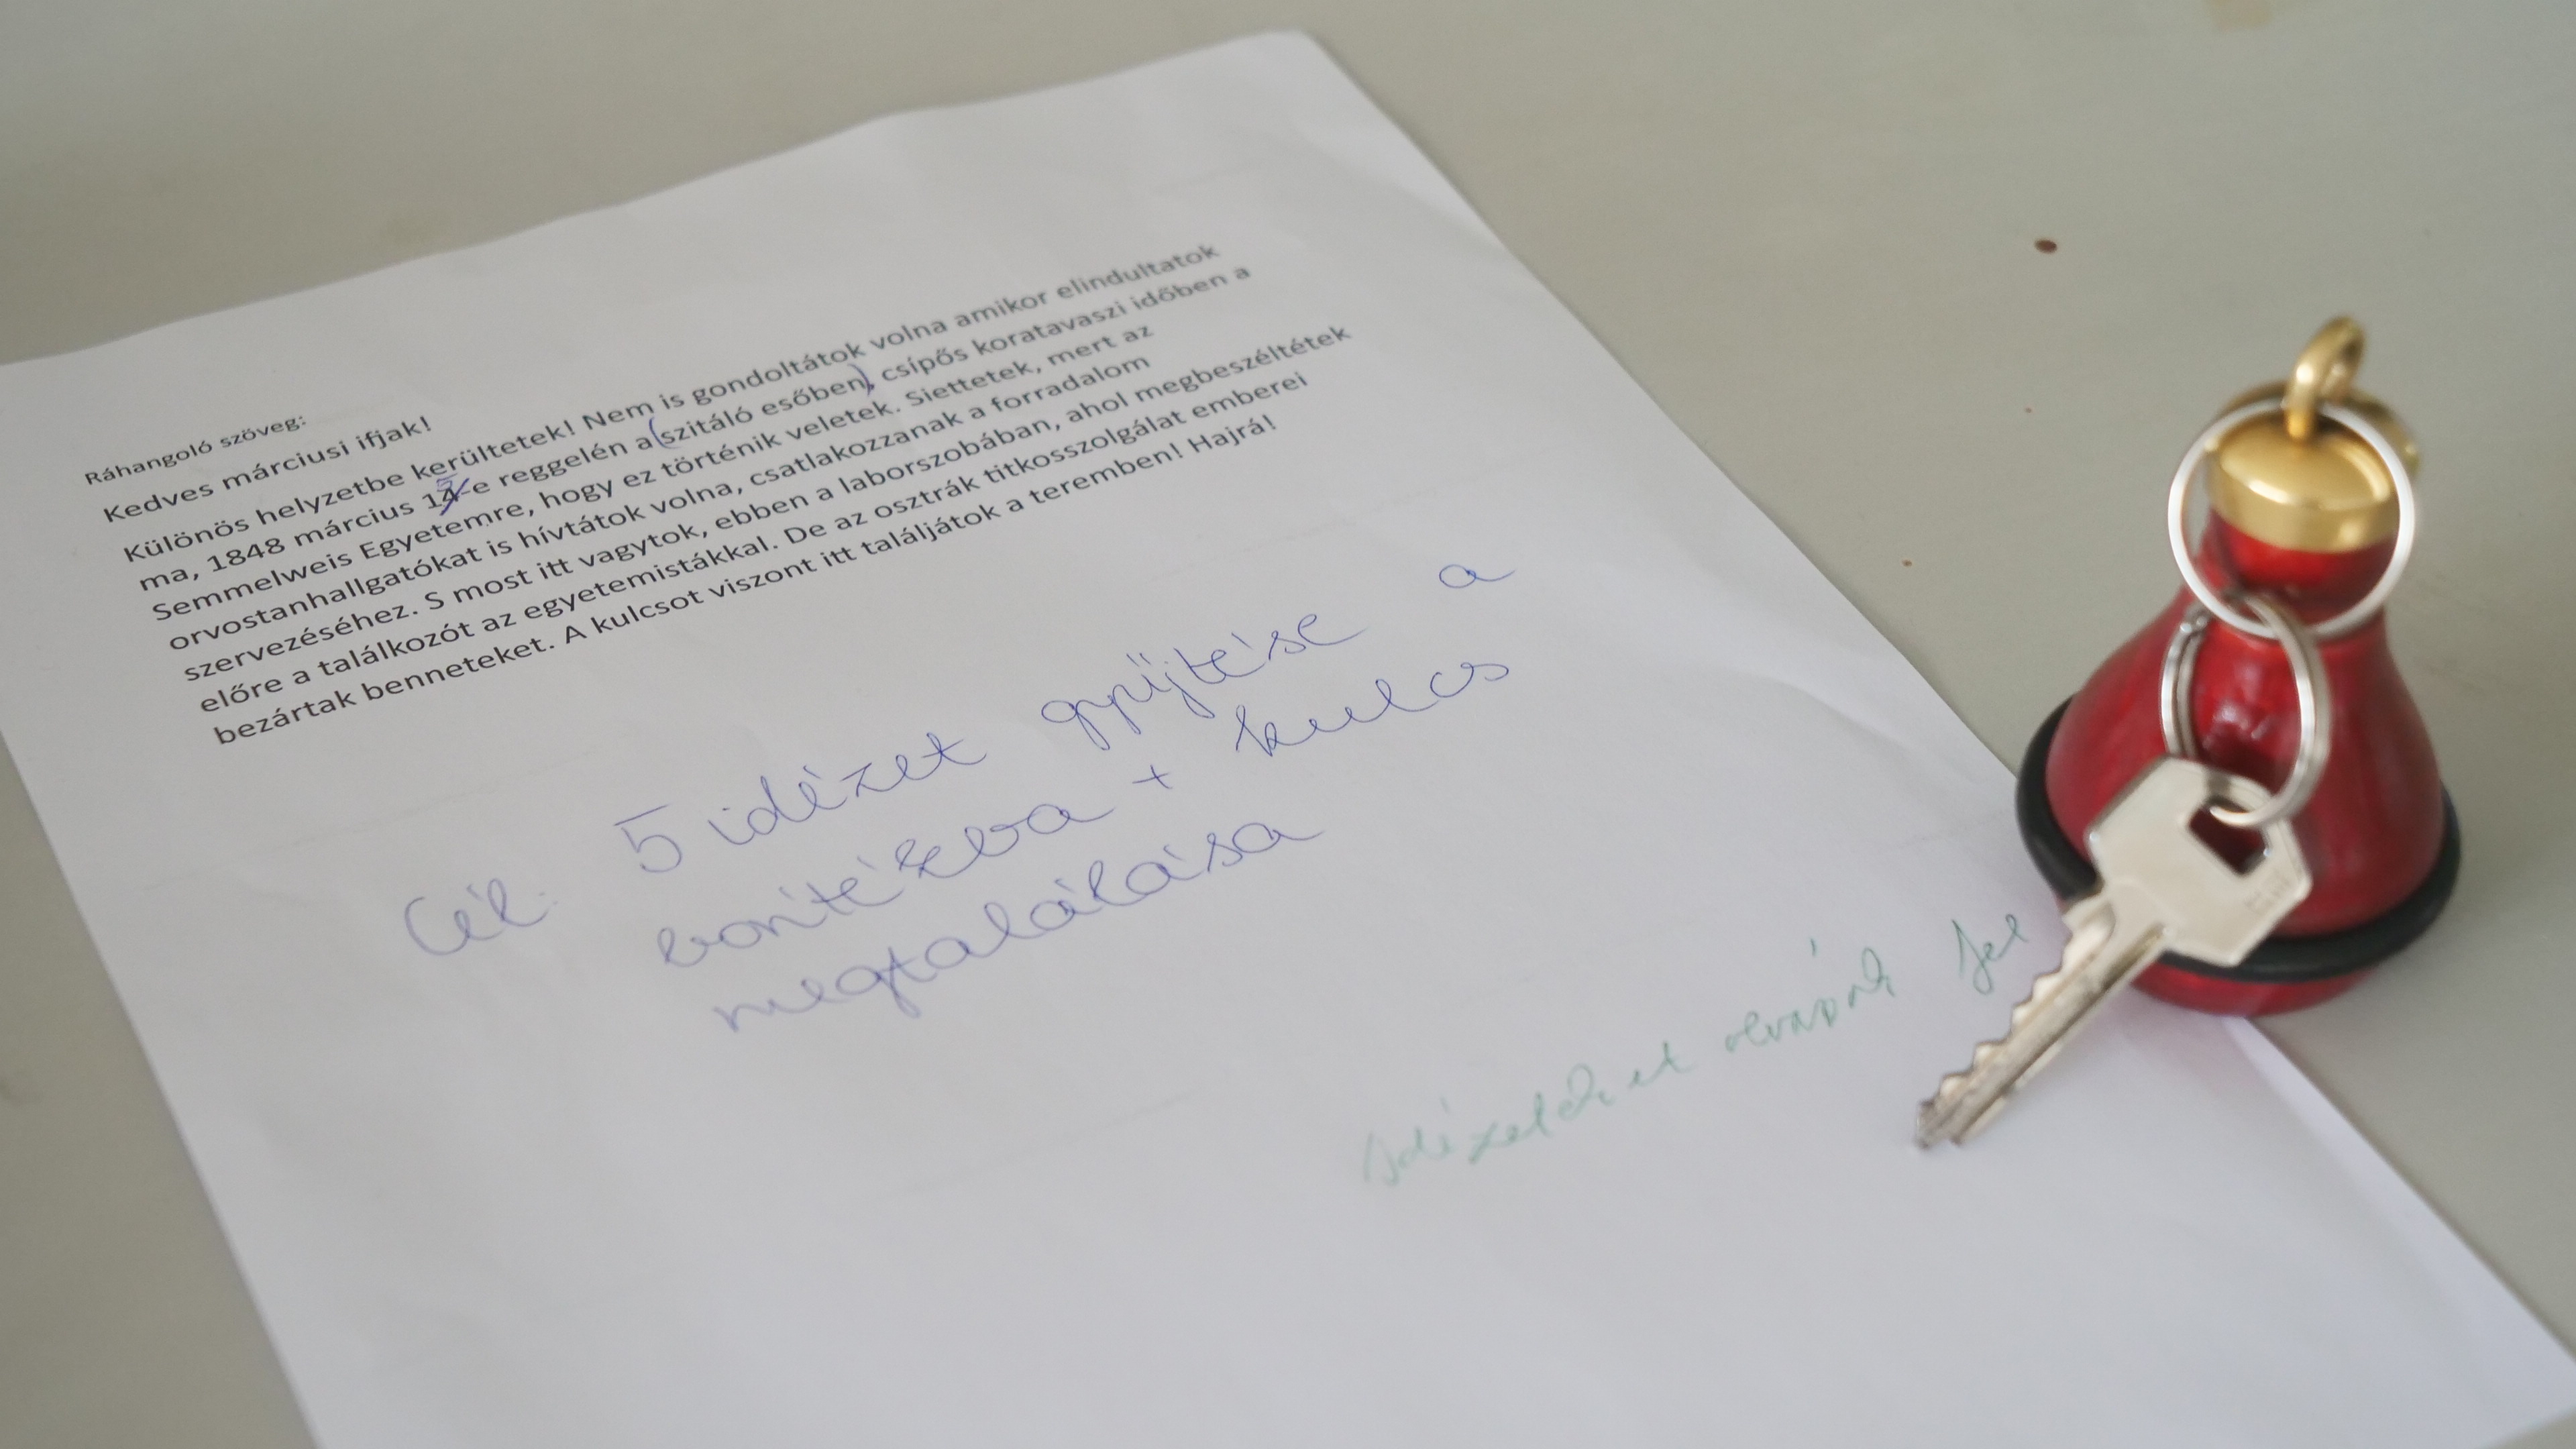 Ráhangoló szöveg:
Kedves márciusi ifjak!
Különös helyzetbe kerültetek! Nem is gondoltátok volna amikor elindultatok
ma, 1848 március 15-e reggelén a (szitáló esőben), csípős koratavaszi időben a
Semmelweis Egyetemre, hogy ez történik veletek. Siettetek, mert az
orvostanhallgatókat is hívtátok volna, csatlakozzanak a forradalom
szervezéséhez. S most itt vagytok, ebben a laborszobában, ahol megbeszéltétek
előre a találkozót az egyetemistákkal. De az osztrák titkosszolgálat emberei
bezártak benneteket. A kulcsot viszont itt találjátok a teremben! Hajrá!
Cél: 5 idézet gyűjtése a
borítékba + kulcs
megtalálása
Idézeteket olvassák fel